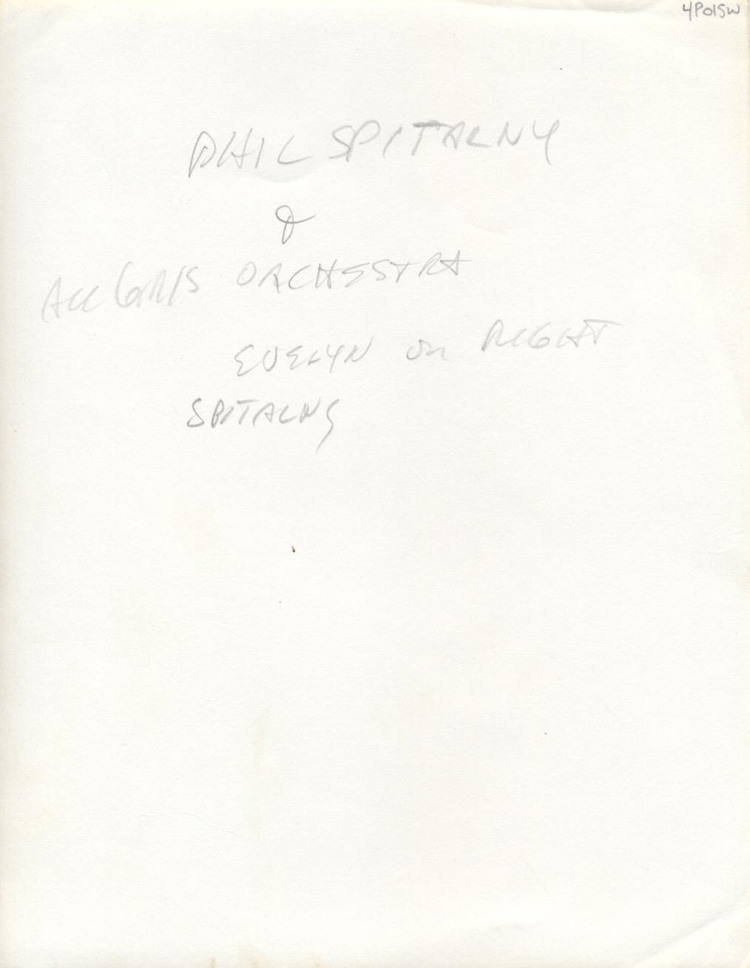 4P015W
PHIL SPITALNY
&
ALL GIRLS ORCHESTRA
EVELYN ON RIGHT
SPITALNY